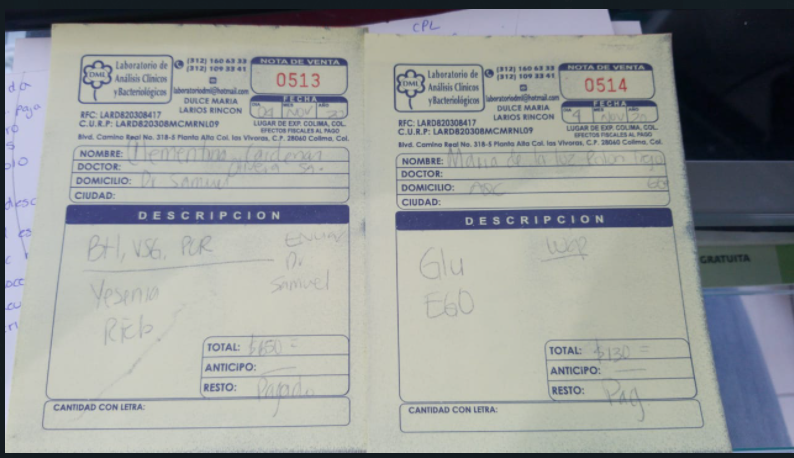 CPL
Laboratorio de
Análisis Clínicos
y Bacteriológicos
DML
(312) 160 63 33
(312) 109 33 41
laboratoriodml@hotmail.com
DULCE MARIA
LARIOS RINCON
NOTA DE VENTA
0513
FECHA
DIA MES AÑO
04 Nov 20
RFC: LARD820308417
C.U.R.P: LARD820308MCMRNL09
LUGAR DE EXP. COLIMA, COL.
EFECTOS FISCALES AL PAGO
Blvd. Camino Real No. 318-5 Planta Alta Col. las Víboras, C.P. 28060 Colima, Col.
NOMBRE: Clementina Cardenas
DOCTOR:
DOMICILIO: Dr Samuel
CIUDAD:
DESCRIPCION
BH, VSG, PCR
Enviar
Dr.
Samuel
Yesenia
TOTAL: $150 =
ANTICIPO:
RESTO: Pagado
CANTIDAD CON LETRA:
Laboratorio de
Análisis Clínicos
y Bacteriológicos
DML
(312) 160 63 33
(312) 109 33 41
laboratoriodml@hotmail.com
DULCE MARIA
LARIOS RINCON
NOTA DE VENTA
0514
FECHA
DIA MES AÑO
4 Nov 20
RFC: LARD820308417
C.U.R.P: LARD820308MCMRNL09
LUGAR DE EXP. COLIMA, COL.
EFECTOS FISCALES AL PAGO
Blvd. Camino Real No. 318-5 Planta Alta Col. las Víboras, C.P. 28060 Colima, Col.
NOMBRE: Maria de la Luz
DOCTOR:
DOMICILIO:
CIUDAD:
DESCRIPCION
Glu
EGO
TOTAL: $130 =
ANTICIPO:
RESTO: Pag
CANTIDAD CON LETRA:
GRATUITA